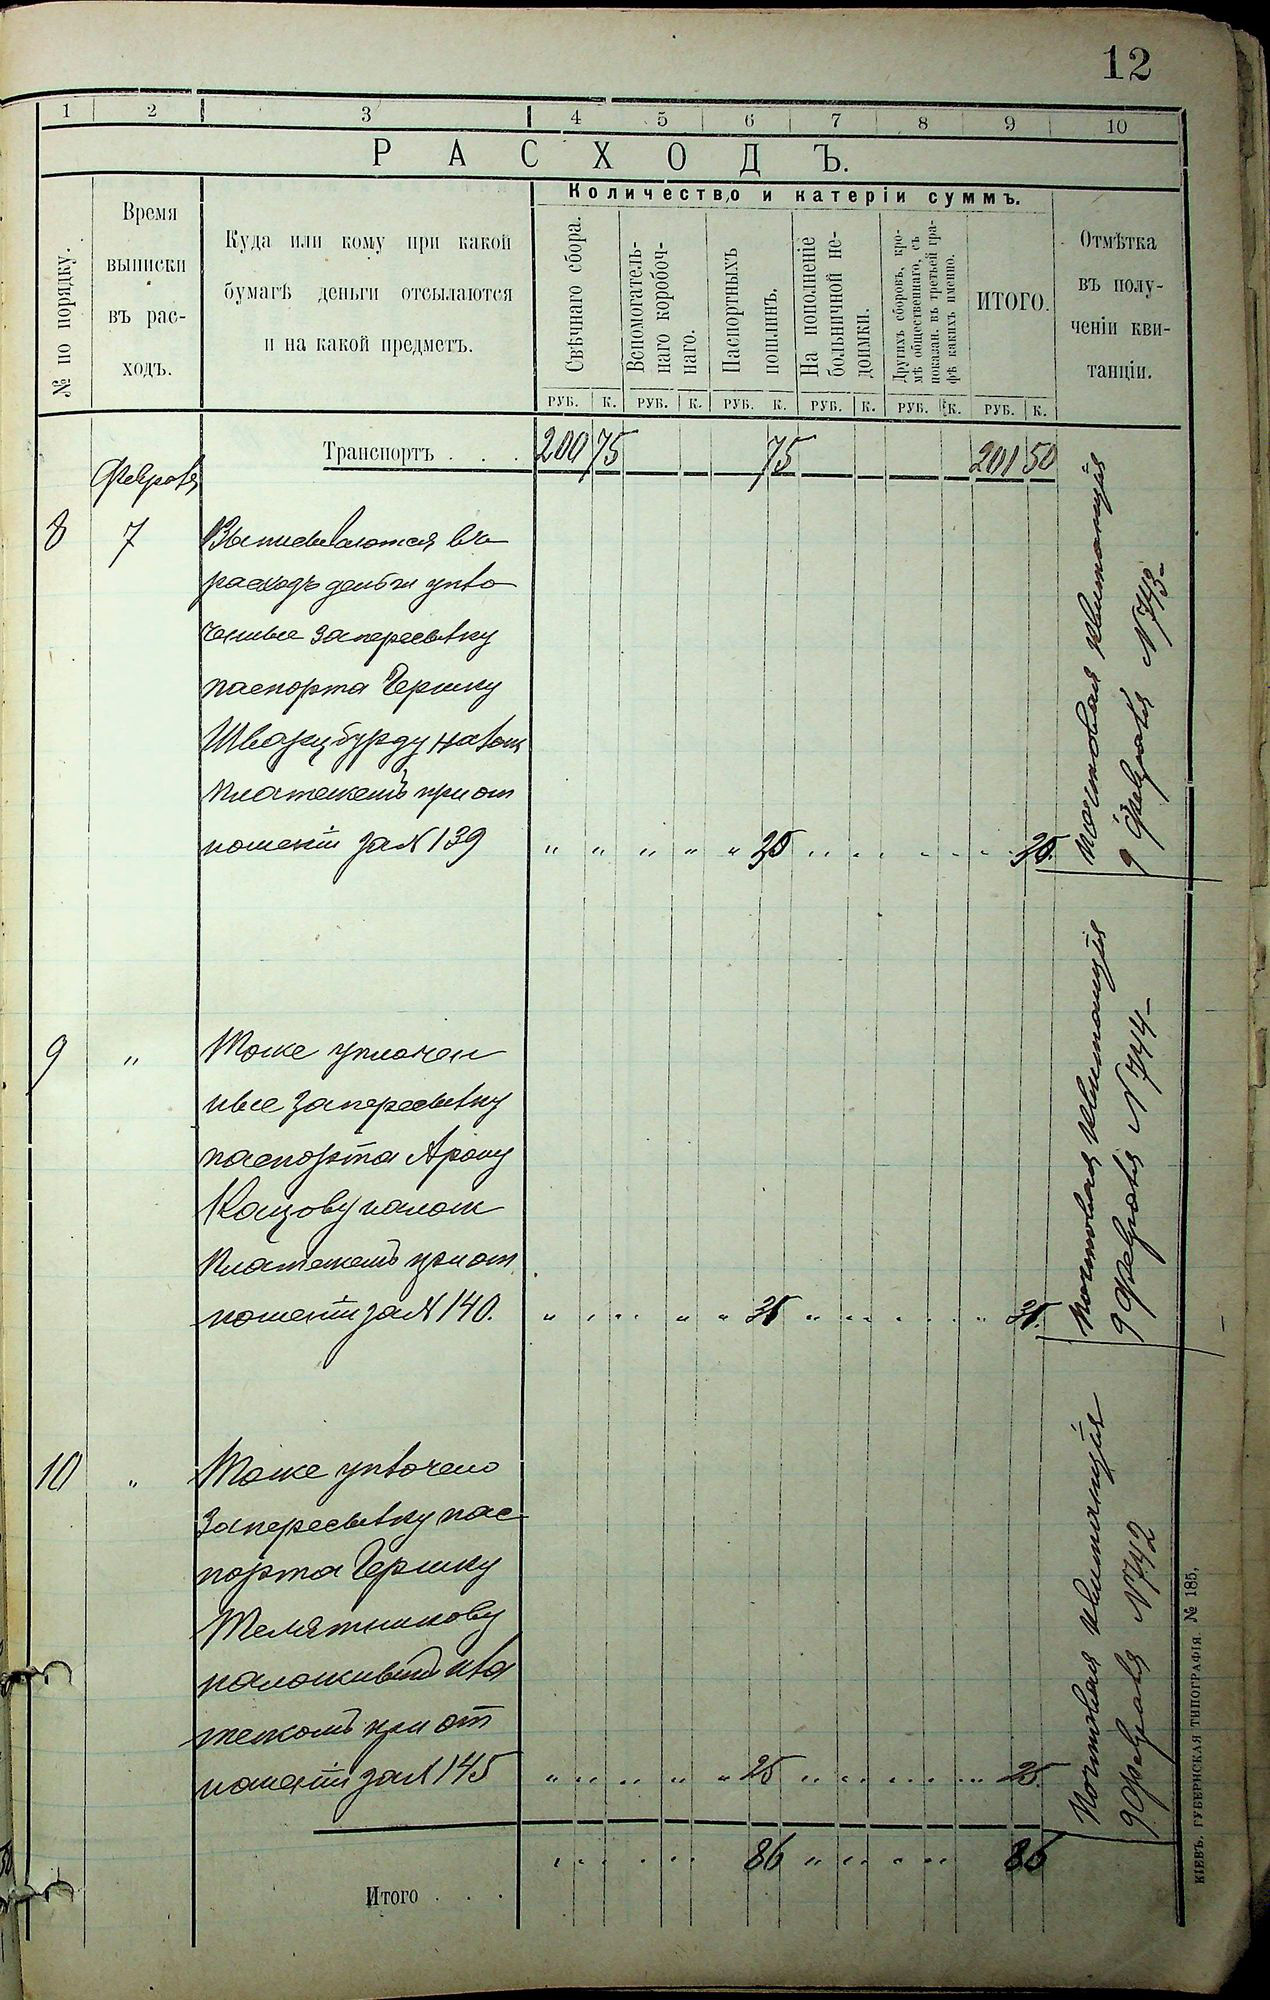 12
1 2 3 4 5 6 7 8 9 10
РАСХОДЪ.
№ по порядку.
Время
выписки
въ рас-
ходъ.
Куда или кому при какой
бумагѣ деньги отсылаются
и на какой предметъ.
Количество и катеріи суммъ.
Свѣчнаго сбора.
Вспомогатель-
наго коробоч-
наго.
Паспортныхъ
пошлинъ.
На пополненіе
больничной не-
доимки.
Другихъ сборовъ, кро-
мѣ общественнаго, съ
показан. въ третьей гра-
фѣ какихъ именно.
ИТОГО.
Отмѣтка
въ полу-
ченіи кви-
танціи.
РУБ. К. РУБ. К. РУБ. К. РУБ. К. РУБ. К. РУБ. К.
Транспортъ . . . 200 75 75 201 50
Февраля
8 7 Выписываются въ
расходъ деньги упло
ченные за пересылку
паспорта Гершку
Шварцбурду налож
платежемъ при от
ношеніи за N 139
Почтовая квитанція
9 Февраля N 743-
9 " Тоже уплочен
ные за пересылку
паспорта Арону
Кацову налож
платежемъ при от
ношеніи за N 140.
Почтовая квитанція
9 Февраля N 744-
10 " Тоже уплочено
за пересылку пас-
порта Гершку
Телятникову
пла
тежомъ при от
ношеніи за N 145 25 25.
Почтовая квитанція
9 Февраля N 742
Итого . . . 86 86
КІЕВЪ. ГУБЕРНСКАЯ ТИПОГРАФІЯ. № 185.